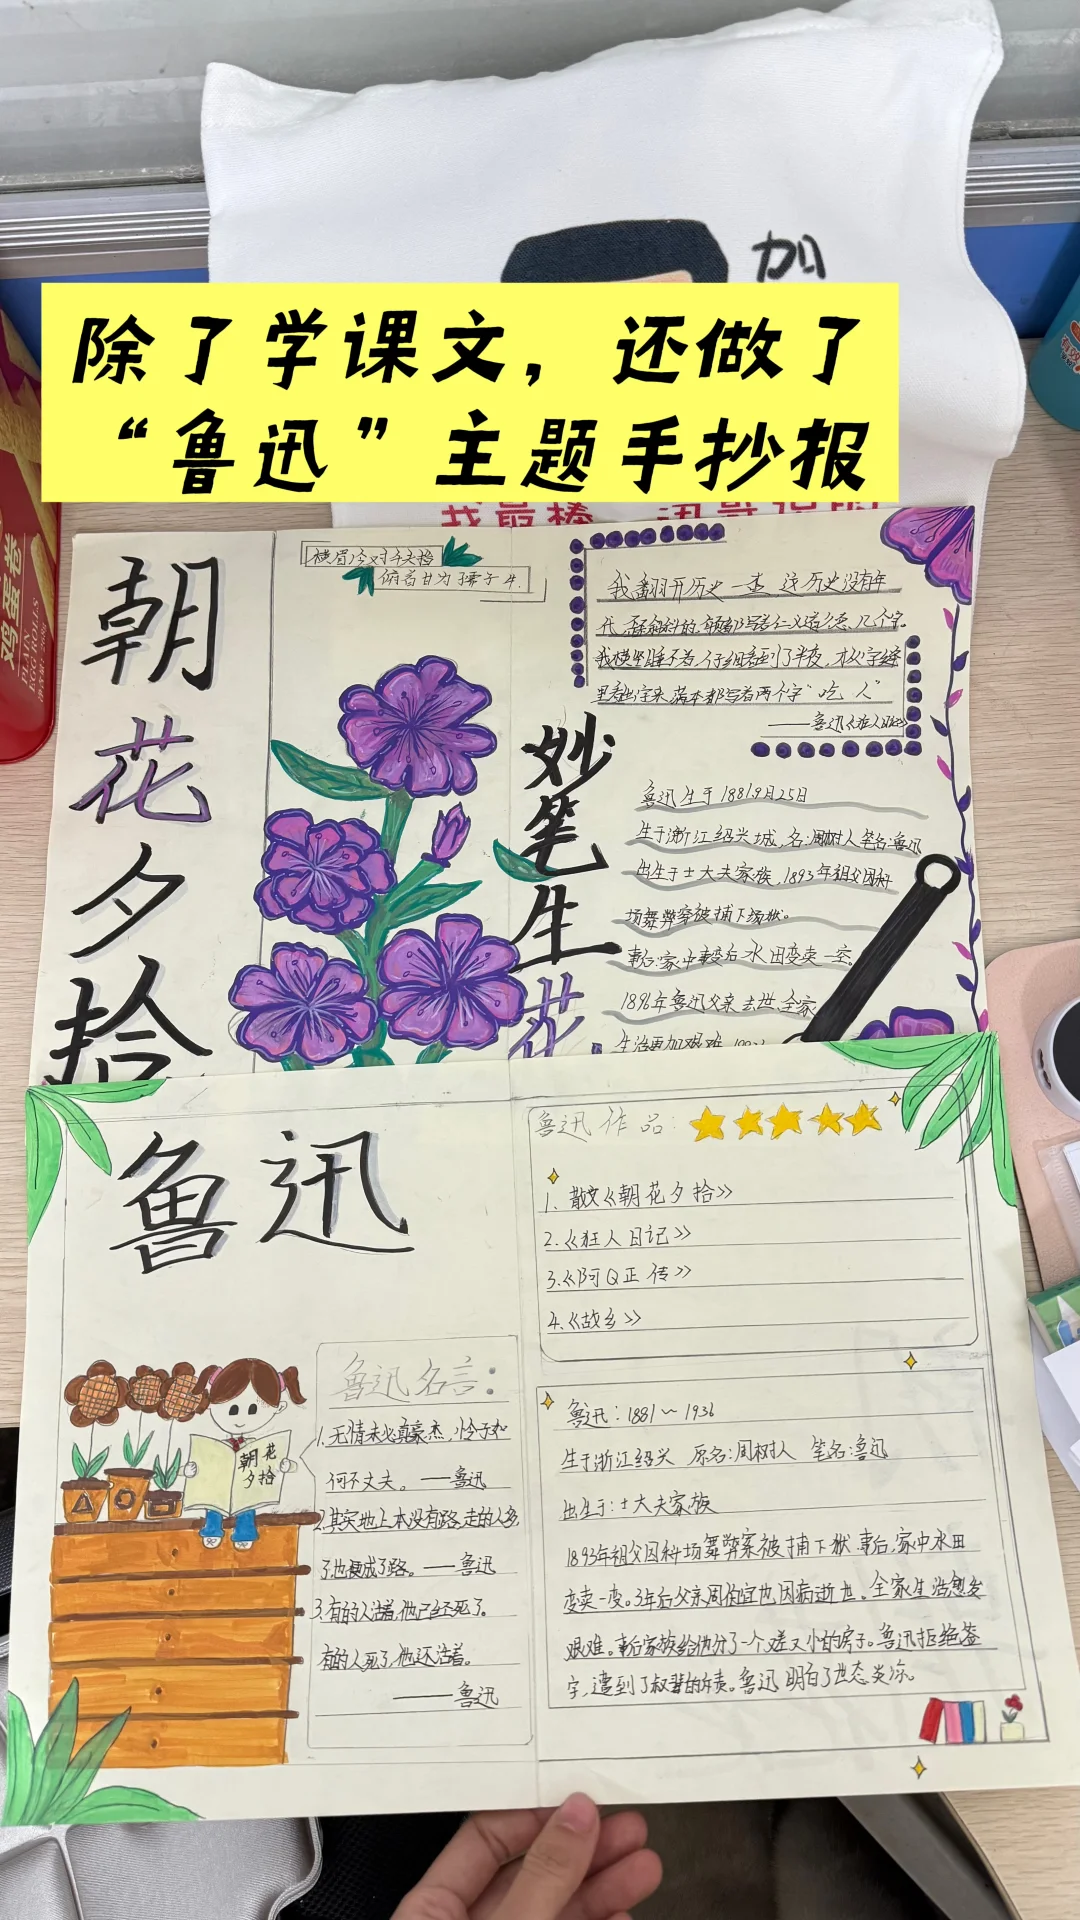 加
除了学课文，还做了
“鲁迅”主题手抄报
朝花夕拾
横眉冷对千夫指
俯首甘为孺子牛.
妙笔生花
我翻开历史一查 这历史没有年
代,歪歪斜斜的,
我横竖睡不着,仔细看到了半夜,才从字缝
里看出字来,满本都写着两个字“吃人”
——鲁迅《狂人日记》
鲁迅生于1881.9月25日
生于浙江绍兴城,名:周树人笔名:鲁迅
出生于士大夫家族,1893年祖父因科
场舞弊案被捕下狱。
事后:家中事变后水田变卖一空.
1896年鲁迅父亲去世,全家
生活更加艰难
鲁迅
鲁迅名言:
1.无情未必真豪杰,怜子如
何不丈夫。——鲁迅
2.其实地上本没有路,走的人多
了也便成了路。——鲁迅
3.有的人活着,他已经死了。
有的人死了,他还活着。
——鲁迅
鲁迅作品:
1、散文《朝花夕拾》
2.《狂人日记》
3.《阿Q正传》
4.《故乡》
鲁迅:1881~1936
生于浙江绍兴 原名:周树人 笔名:鲁迅
出生于:士大夫家族
1893年祖父因科场舞弊案被捕下狱.事后,家中水田
变卖一变。3年后父亲周伯宜也因病逝世。全家生活愈发
艰难。事后家族给他分了一个又差又小的房子。鲁迅拒绝签
字,遭到了叔辈的斥责。鲁迅明白了世态炎凉。
朝花
夕拾
PLAIN
EGG ROLLS